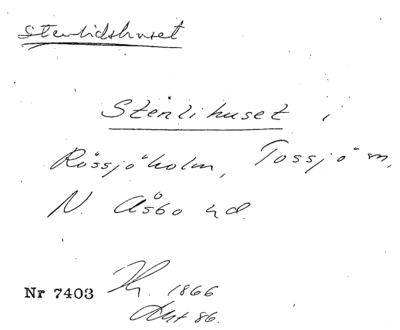 Stenlidshuset
Stenlihuset i
Rössjöholm, Tossjö sn,
N. Åsbo hd.
Nr 7403
1866
86.